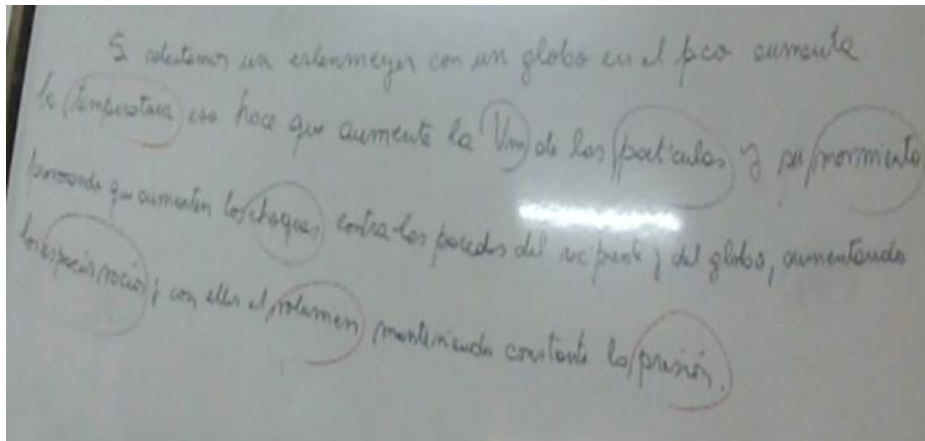 Si calentamos un erlenmeyer con un globo en el pico aumenta
la temperatura eso hace que aumente la Vm de las partículas y su movimiento
provocando que aumenten los choques contra las paredes del recipiente y del globo, aumentando
los espacios vacíos y con ellos el volumen manteniendo constante la presión.